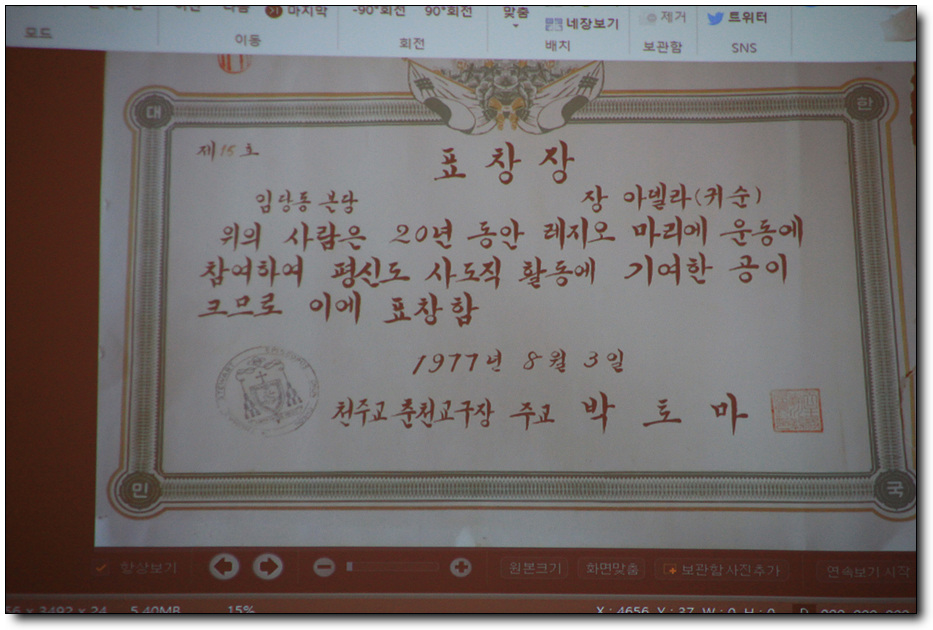 마지막 -90°회전 90°회전 맞춤 네장보기 제거 트위터
모드 이동 회전 배치 보관함 SNS
대 한
제15호
표창장
임당동 본당 장 아델라(귀순)
위의 사람은 20년 동안 레지오 마리에 운동에
참여하여 평신도 사도직 활동에 기여한 공이
크므로 이에 표창함
1977년 8월 3일
천주교 춘천교구장 주교 박 토 마
민 국
항상보기 원본크기 화면맞춤 보관함사진추가 연속보기 시작
x 3492 x 24 5.40MB 15% X : 4656 Y : 37 W : 0 H : 0